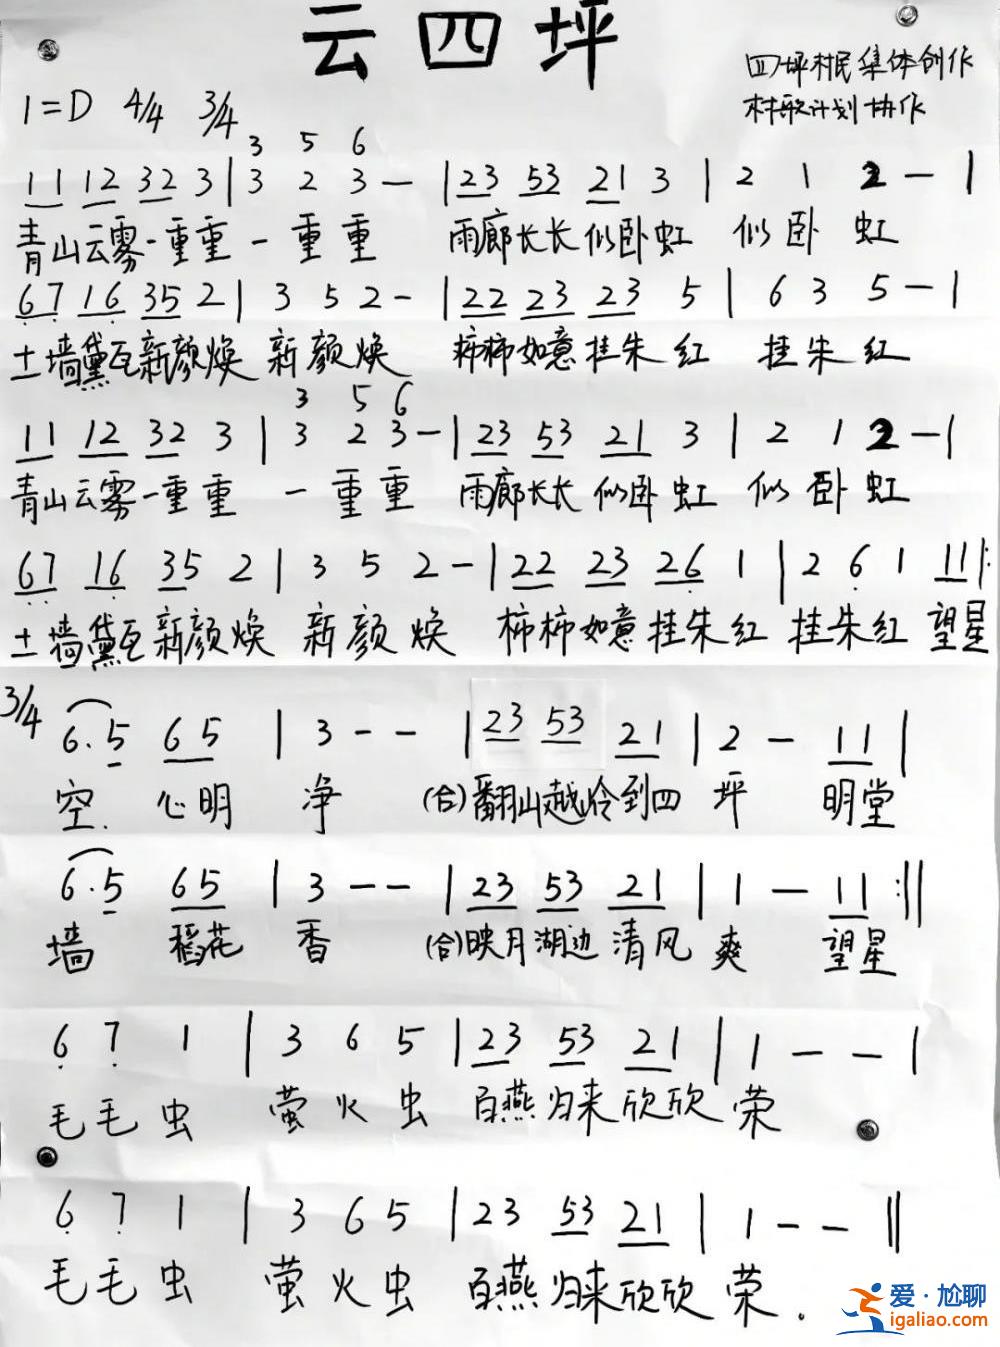 云四坪
四坪村民集体创作
村歌计划 协作
1=D 4/4 3/4
3 5 6
11 12 32 3 | 3 2 3 — | 23 53 21 3 | 2 1 2 — |
青山云雾一重重 一重重 雨廊长长似卧虹 似卧虹
67 16 35 2 | 3 5 2 — | 22 23 23 5 | 6 3 5 — |
土墙黛瓦新颜焕 新颜焕 柿柿如意挂朱红 挂朱红
3 5 6
11 12 32 3 | 3 2 3 — | 23 53 21 3 | 2 1 2 — |
青山云雾一重重 一重重 雨廊长长似卧虹 似卧虹
67 16 35 2 | 3 5 2 — | 22 23 26 1 | 2 6 1 11 |:
土墙黛瓦新颜焕 新颜焕 柿柿如意挂朱红 挂朱红 望星
3/4 6.5 65 | 3 - - | 23 53 21 | 2 — 11 |
空. 心明 净 (合)翻山越冷到四 坪 明堂
6.5 65 | 3 — — | 23 53 21 | 1 — 11 :||
墙 稻花 香 (合)映月湖边清风 爽 望星
6 7 1 | 3 6 5 | 23 53 21 | 1 — — |
毛毛虫 萤火虫 百燕归来欣欣荣
6 7 1 | 3 6 5 | 23 53 21 | 1 - - ||
毛毛虫 萤火虫 百燕归来欣欣荣.
爱·尬聊
igaliao.com